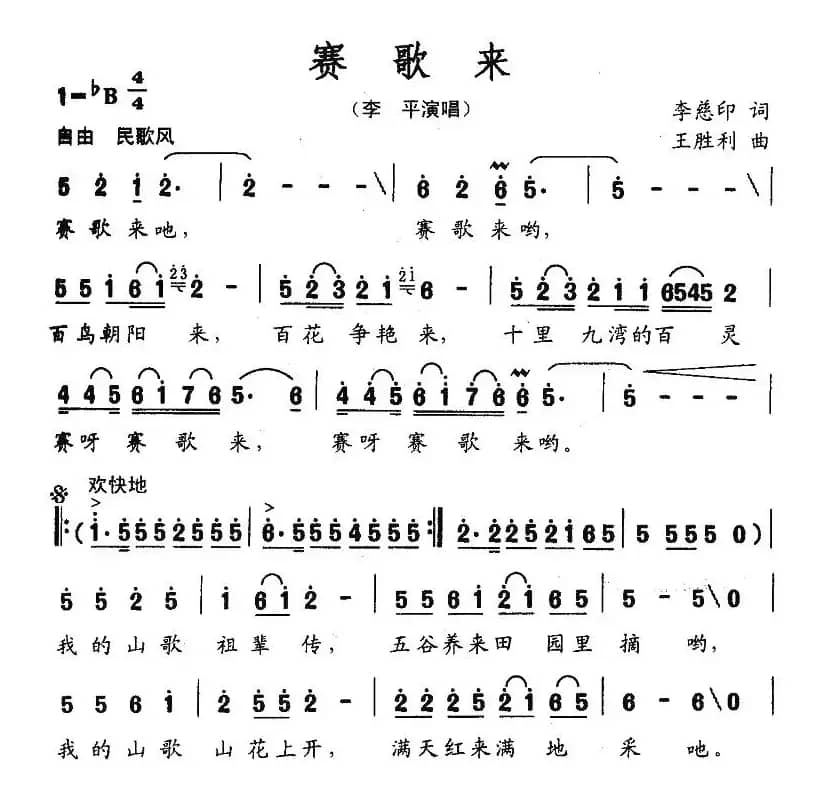 赛 歌 来
1=♭B 4/4
(李 平演唱)
李慈印 词
自由 民歌风
王胜利 曲
5 2 1 2· | 2 - - - \ | 6 2 6 5· | 5 - - - \ |
赛 歌 来 吔, 赛 歌 来 哟,
5 5 1 6 1 2 3 2 - | 5 2 3 2 1 2 1 6 - | 5 2 3 2 1 1 6545 2 |
百鸟朝阳 来, 百花 争艳 来, 十里 九湾的百 灵
4 4 5 6 1 7 6 5· 6 | 4 4 5 6 1 7 6 6 5· | 5 - - - |
赛呀 赛 歌 来, 赛呀 赛 歌 来哟。
欢快地
‖: (1· 5 5 5 2 5 5 5 | 6· 5 5 5 4 5 5 5 :‖ 2· 2 2 5 2 1 6 5 | 5 5 5 5 0 ) |
5 5 2 5 | 1 6 1 2 - | 5 5 6 1 2 1 6 5 | 5 - 5 \ 0 |
我 的 山 歌 祖 辈 传, 五谷养来田 园里 摘 哟,
5 5 6 1 | 2 5 5 2 - | 2 2 2 5 2 1 6 5 | 6 - 6 \ 0 |
我 的 山 歌 山 花上 开, 满天红来满 地 采 吔。